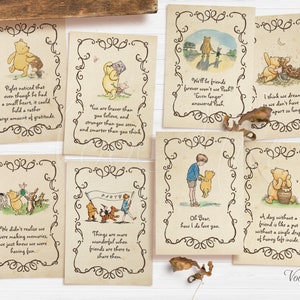 Piglet noticed that
even though he had
a small heart, it could
hold a rather
large amount of gratitude.
You are braver than
you believe, and
stronger than you seem,
and smarter than you think.
We'll be friends
forever won't we Pooh?
"Even longer"
answered Pooh.
I think we dream
so we don't have
apart so long
We didn't realize we
were making memories,
we just knew we were
having fun.
PARTY
Things are more
wonderful when
friends are there to
share them.
Oh Bear,
how I do love you.
A day without a
friend is like a pot
without a single drop
of honey left inside.